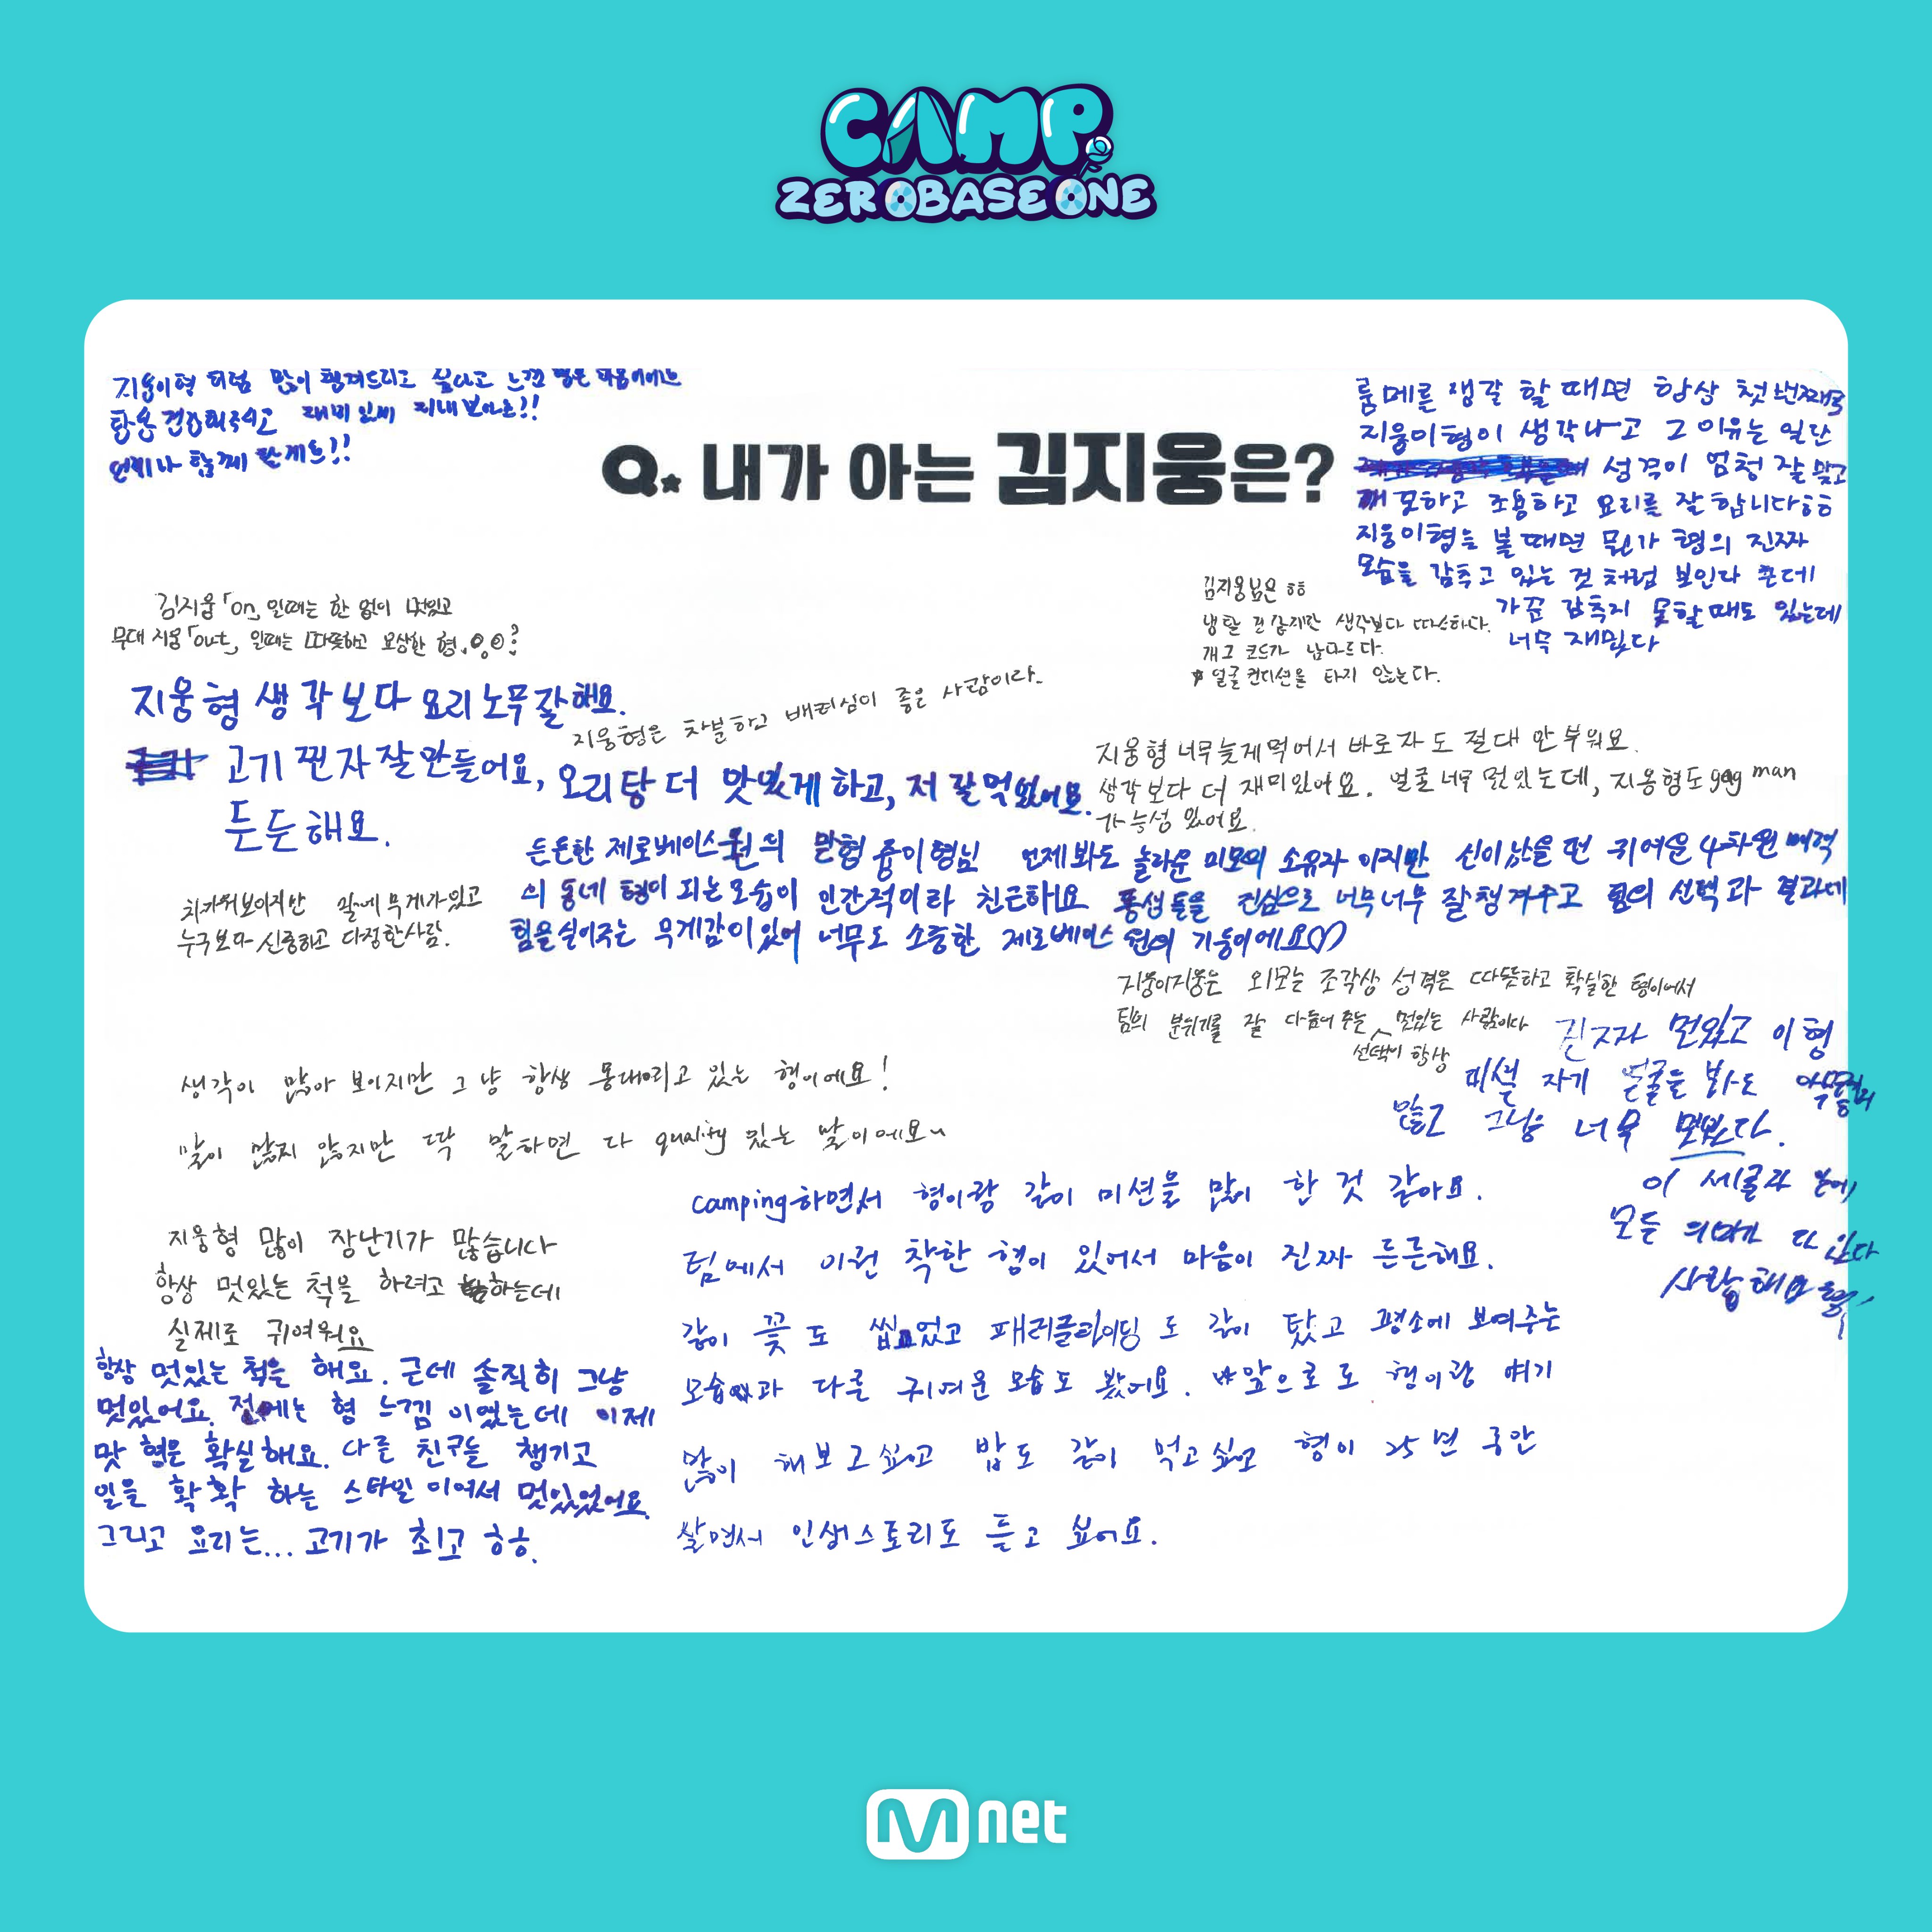 CAMP
ZEROBASEONE
지웅이형 처럼 많이 챙겨드리고 싶다고 느낀 마음이에요
항상 건강해주시고 재미있게 지내보아요!!
언제나 함께 할게요!!
Q. 내가 아는 김지웅은?
룸메를 생각 할 때면 항상 첫번째로
지웅이형이 생각나고 그 이유는 일단
성격이 엄청 잘 맞고
깨끗하고 조용하고 요리를 잘 합니다ㅎㅎ
지웅이형을 볼 때면 뭔가 형의 진짜
모습을 감추고 있는 것 처럼 보인다 큰데
가끔 감추지 못할때도 있는데
너무 재밌다
김지웅「on」일때는 한 없이 멋있고
무대 지웅「out」일때는 따뜻하고 모상한 형
김지웅님은 ㅎㅎ
생각보다 따스하다.
개그 코드가 남다르다.
얼굴 컨디션을 타지 않는다.
지웅형 생각보다 요리 노무 잘해요.
고기 찐자 잘 만들어요, 오리탕 더 맛있게 하고, 저 잘 먹었어요.
든든해요.
지웅형은 차분하고 배려심이 좋은 사람이라.
지웅형 너무 늦게 먹어서 바로 자도 절대 안 부워요.
생각보다 더 재미있어요. 얼굴 너무 멋있는데, 지웅형도 gag man
가능성 있어요.
든든한 제로베이스원의 맏형 쥼이형님 언제봐도 놀라운 미모의 소유자 이지만 신이났을 떤 귀여운 4차원 매력
의 동네 형이 되는 모습이 인간적이라 친근해요 동생들을 진심으로 너무너무 잘 챙겨주고 팀의 선택과 결과에
힘을 실어주는 무게감이 있어 너무도 소중한 제로베이스원의 기둥이에요♡
시카워보이지만 말에 무게가 있고
누구보다 신중하고 다정한사람.
지웅이지웅은 외모는 조각상 성격은 따뜻하고 확실한 형이어서
팀의 분위기를 잘 다듬어 주는 선택이 항상 멋있는 사람이다
진짜 멋있고 이형
미쳤 자기 얼굴을 봐도
않고 그냥 너무 멋있다.
이 세글자 안에
모든 의미가 다 있다
사랑해요 형
생각이 많아 보이지만 그냥 항상 몽때리고 있는 형이에요!
말이 많지 않지만 딱 말하면 다 quality 있는 말이에요~
camping하면서 형이랑 같이 미션을 많이 한 것 같아요.
팀에서 이런 착한 형이 있어서 마음이 진짜 든든해요.
같이 꽃도 씹었고 패러글라이딩도 같이 탔고 평소에 보여주는
모습과 다른 귀여운 모습도 봤어요. 앞으로도 형이랑 얘기
많이 해보고싶고 밥도 같이 먹고싶고 형이 25년 동안
살면서 인생스토리도 듣고 싶어요.
지웅형 많이 장난기가 많습니다
항상 멋있는 척을 하려고 하는데
실제로 귀여워요
항상 멋있는 척을 해요. 근데 솔직히 그냥
멋있어요. 전에는 형 느낌 이였는데 이제
맛 형은 확실해요. 다른 친구들 챙기고
일을 확확 하는 스타일 이여서 멋있었어요.
그리고 요리는... 고기가 최고 ㅎㅎ.
Mnet